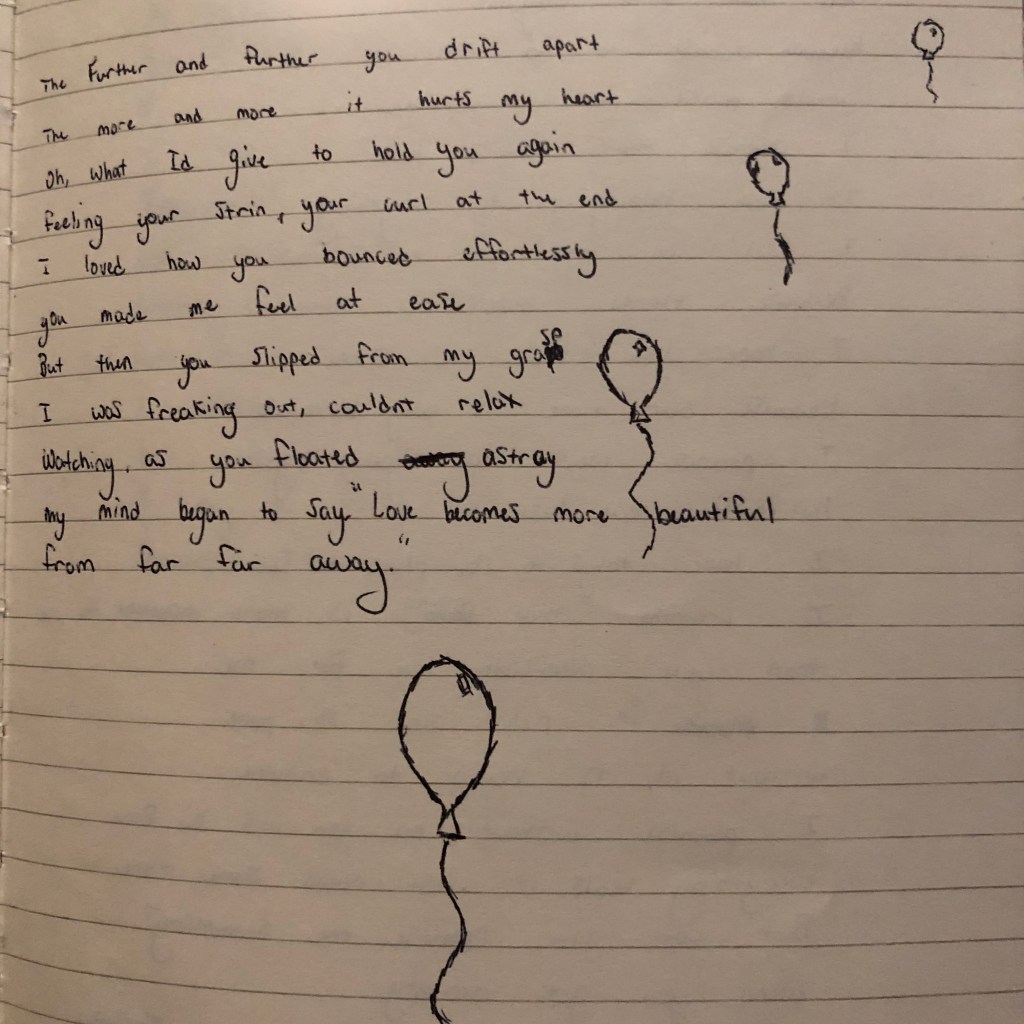 The Further and further you drift apart
The more and more it hurts my heart
Oh, what Id give to hold you again
feeling your strin, your curl at the end
I loved how you bounced effortlessly
you made me feel at ease
But then you slipped from my grasp
I was freaking out, couldnt relax
Watching, as you floated away astray
my mind began to say "Love becomes more beautiful
from far far away."